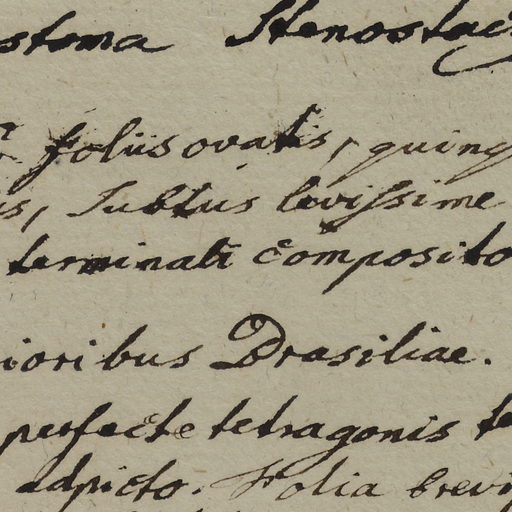 stoma Stenostac
foliis ovatis, quinq
is, Subtus levissime
terminali composito
ioribus Brasiliae.
perfecte tetragonis te
adpicto. Folia brevi